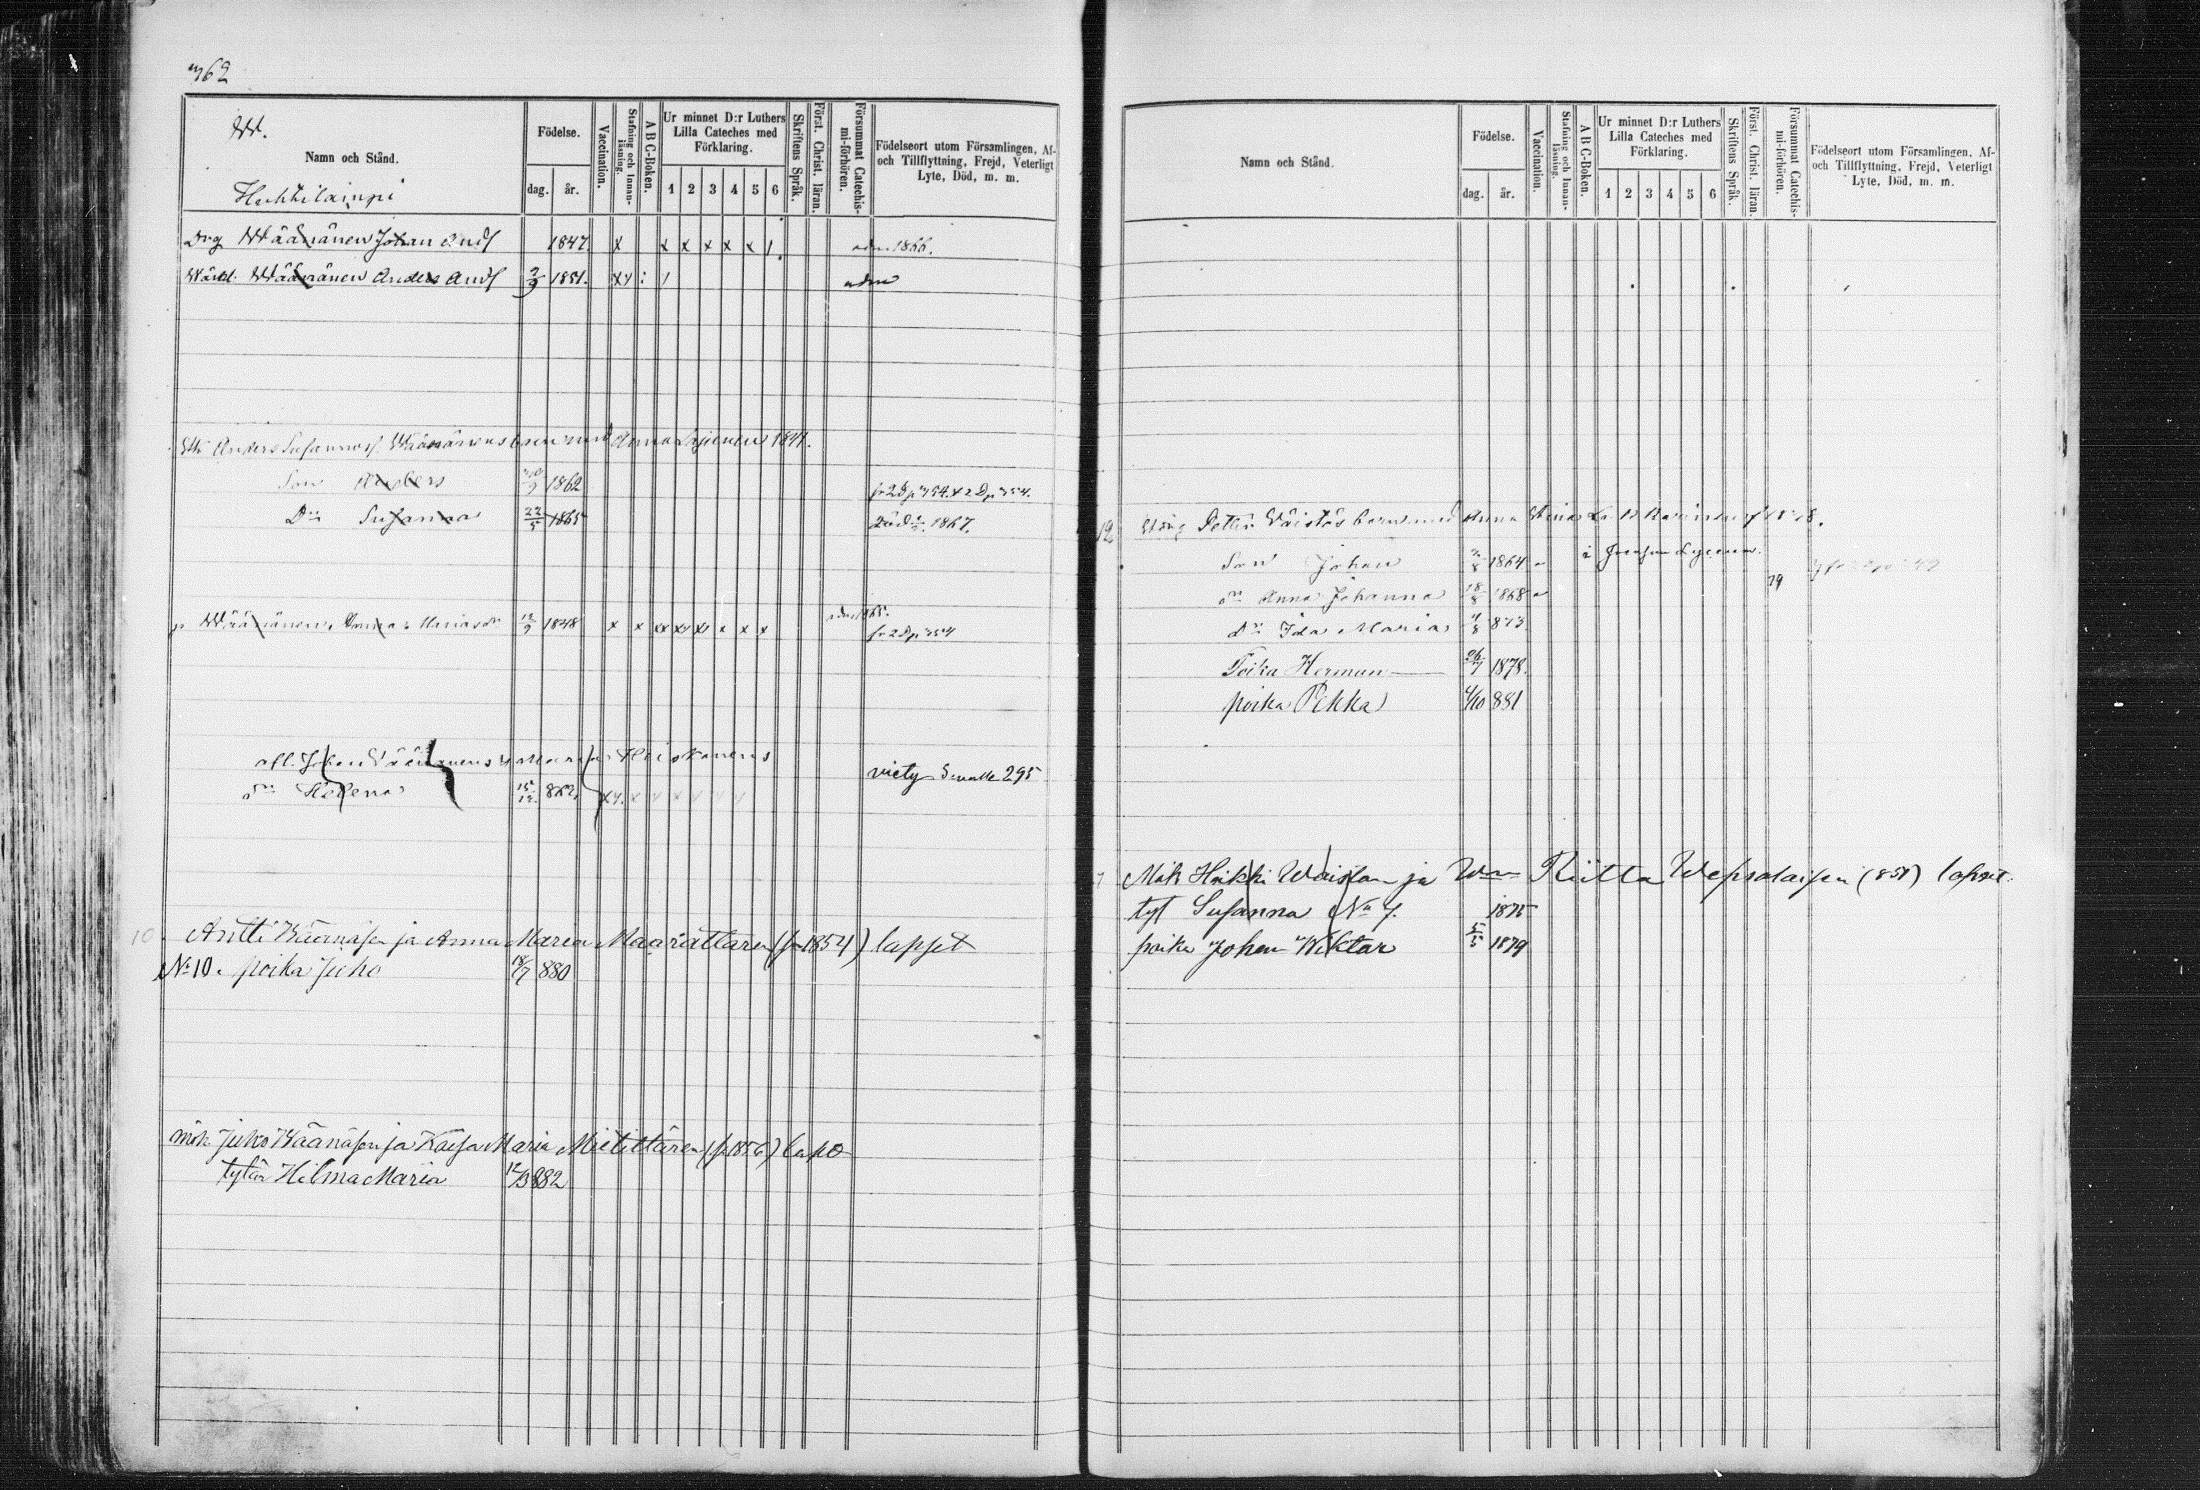 362
W.
Namn och Stånd.
Huhtilampi
Födelse.
dag. år.
Vaccination.
Stafning och Innanläsning.
A B C-Boken.
Ur minnet D:r Luthers Lilla Cateches med Förklaring.
1 2 3 4 5 6
Skriftens Språk.
Först. Christ. läran.
Försummat Catechismi-förhören.
Födelseort utom Församlingen, Af- och Tillflyttning, Frejd, Veterligt Lyte, Död, m. m.
Drg Wäänänen Johan And 1847. x x x x x x 1 adm 1866.
Wäänänen Anders And 2/9 1851. xy : 1 adm
Anders Wäänänens barn med Anna 1841.
Son Anders 1862
Dr Susanna 22/5 1865 död 1867.
Wäänänen, Anna Mariadr 12/9 1848 x x xx xy x x x x
Johan Väänänens Maria Heiskanens
dr Helena 15/12 862 xy x
viety S. 295
10. Antti Wäänäsen ja Anna Maria Maarattaren (s. 1854) lapset
No 10. poika Juho 18/7 880
mök Juho Wäänäsen ja Kaisa Maria Miettittären (s. 1856) laps
tytär Hilma Maria 12/3 882
Namn och Stånd.
Födelse.
dag. år.
Vaccination.
Stafning och Innanläsning.
A B C-Boken.
Ur minnet D:r Luthers Lilla Cateches med Förklaring.
1 2 3 4 5 6
Skriftens Språk.
Först. Christ. läran.
Försummat Catechismi-förhören.
Födelseort utom Församlingen, Af- och Tillflyttning, Frejd, Veterligt Lyte, Död, m. m.
12 Petter Väistös barn med Anna
Son Johan 1864 i Joensuu Lyceum.
79
dr Anna Johanna 18/8 1868
Dr Ida Maria 873
Poika Herman 26/7 1878.
poika Pekka 4/10 881
7 Mök Heikki Waistan ja Wmn Riitta Wepsalaisen (858) lapset.
tyt Susanna No 7. 1875
poika Johan Wiktar 5/5 1879